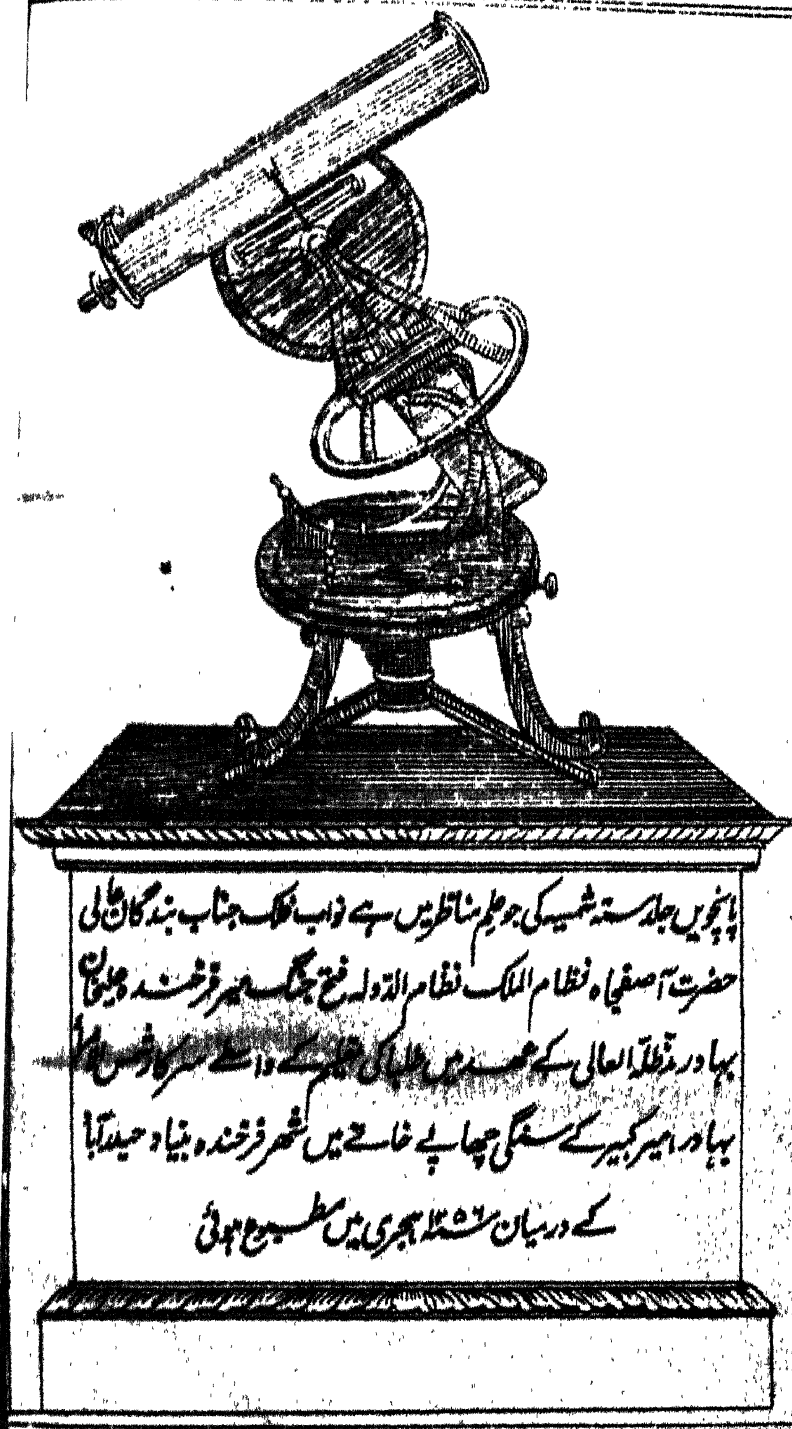 پانچویں جلد ستہ شمسیہ کی جو علم مناظر میں ہے نواب فلک جناب بندگان عالی
حضرت آصفجاہ نظام الملک نظام الدّولہ فتح جنگ میر فرخندہ علیخان
بہادر مدّظلّہ العالی کے عہد میں طلبا کی تعلیم کے واسطے سرکار شمس الامرأ
بہادر امیر کبیر کے سنگی چھاپے خانے میں شہر فرخندہ بنیاد حیدرآباد
کے درمیان ہجری میں مطبوع ہوئی